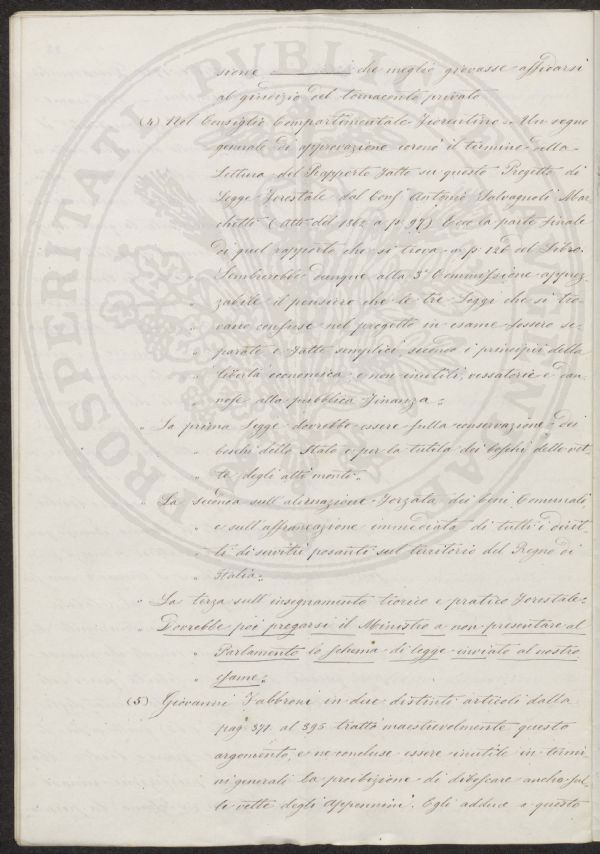 sione ———— che meglio giovasse affidarsi
al giudizio del tornaconto privato
(4) Nel Consiglio Compartimentale Fiorentino. Un segno
generale di approvazione coronò il termine della
Lettura del Rapporto fatto su questo Progetto di
Legge Forestale dal Conf. Antonio Salvagnoli Mar
chetti (Atti del 1862 a p. 97) Ecco la parte finale
di quel rapporto che si trova a p. 126 del Libro.
" Sembrerebbe dunque alla 3ª Commissione apprez-
" zabile il pensiero che le tre Leggi che si tro
" vano confuse nel progetto in esame fossero se-
" parate e fatte semplici, secondo i principii della
" libertà economica e non inutili, vessatorie e dan-
" nose alla pubblica Finanza "
" La prima Legge dovrebbe essere sulla conservazione dei
" boschi dello Stato e per la tutela dei boschi delle vet-
" te degli alti monti "
" La seconda sull'alienazione Forzata dei beni Comunali,
" e sull'affrancazione immediata di tutti i dirit-
" ti di servitù posanti sul territorio del Regno di
" Italia "
" La terza sull'insegnamento teorico e pratico Forestale.
" Dovrebbe poi pregarsi il Ministro a non presentare al
" Parlamento lo schema di legge inviato al nostro
" esame "
(5) Giovanni Fabbroni in due distinti articoli dalla
pag. 371 al 395 trattò maestrevolmente questo
argomento, e ne concluse essere inutile in termi
ni generali la proibizione di diboscare anche sul-
le vette degli Appennini. Egli adduce a questo
PROSPERITATI PVBLICAE